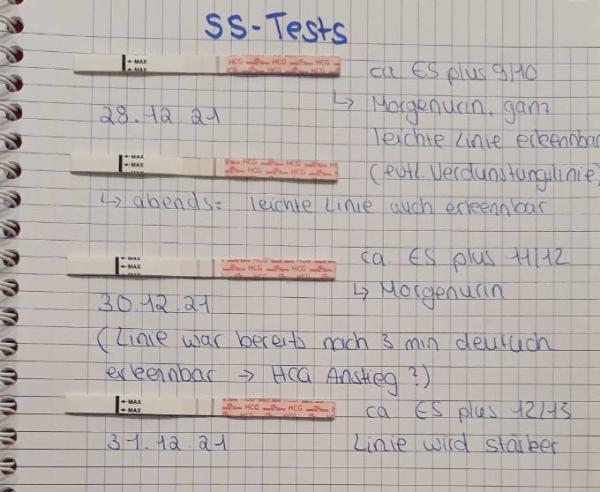 SS-Tests
←MAX ←MAX HCG HCG HCG HCG HCG HCG
ca ES plus 9/10
↳ Morgenurin, ganz
29.12.21
leichte Linie erkennbar
←MAX ←MAX ←MAX HCG HCG
(evtl. Verdunstungslinie)
↳ abends= leichte Linie auch erkennbar
←MAX ←MAX HCG HCG
ca. ES plus 11/12
↳ Morgenurin
30.12.21
(Linie war bereits nach 3 min deutlich
erkennbar → HCG Anstieg?)
←MAX ←MAX HCG HCG
ca ES plus 12/13
31.12.21
Linie wird stärker